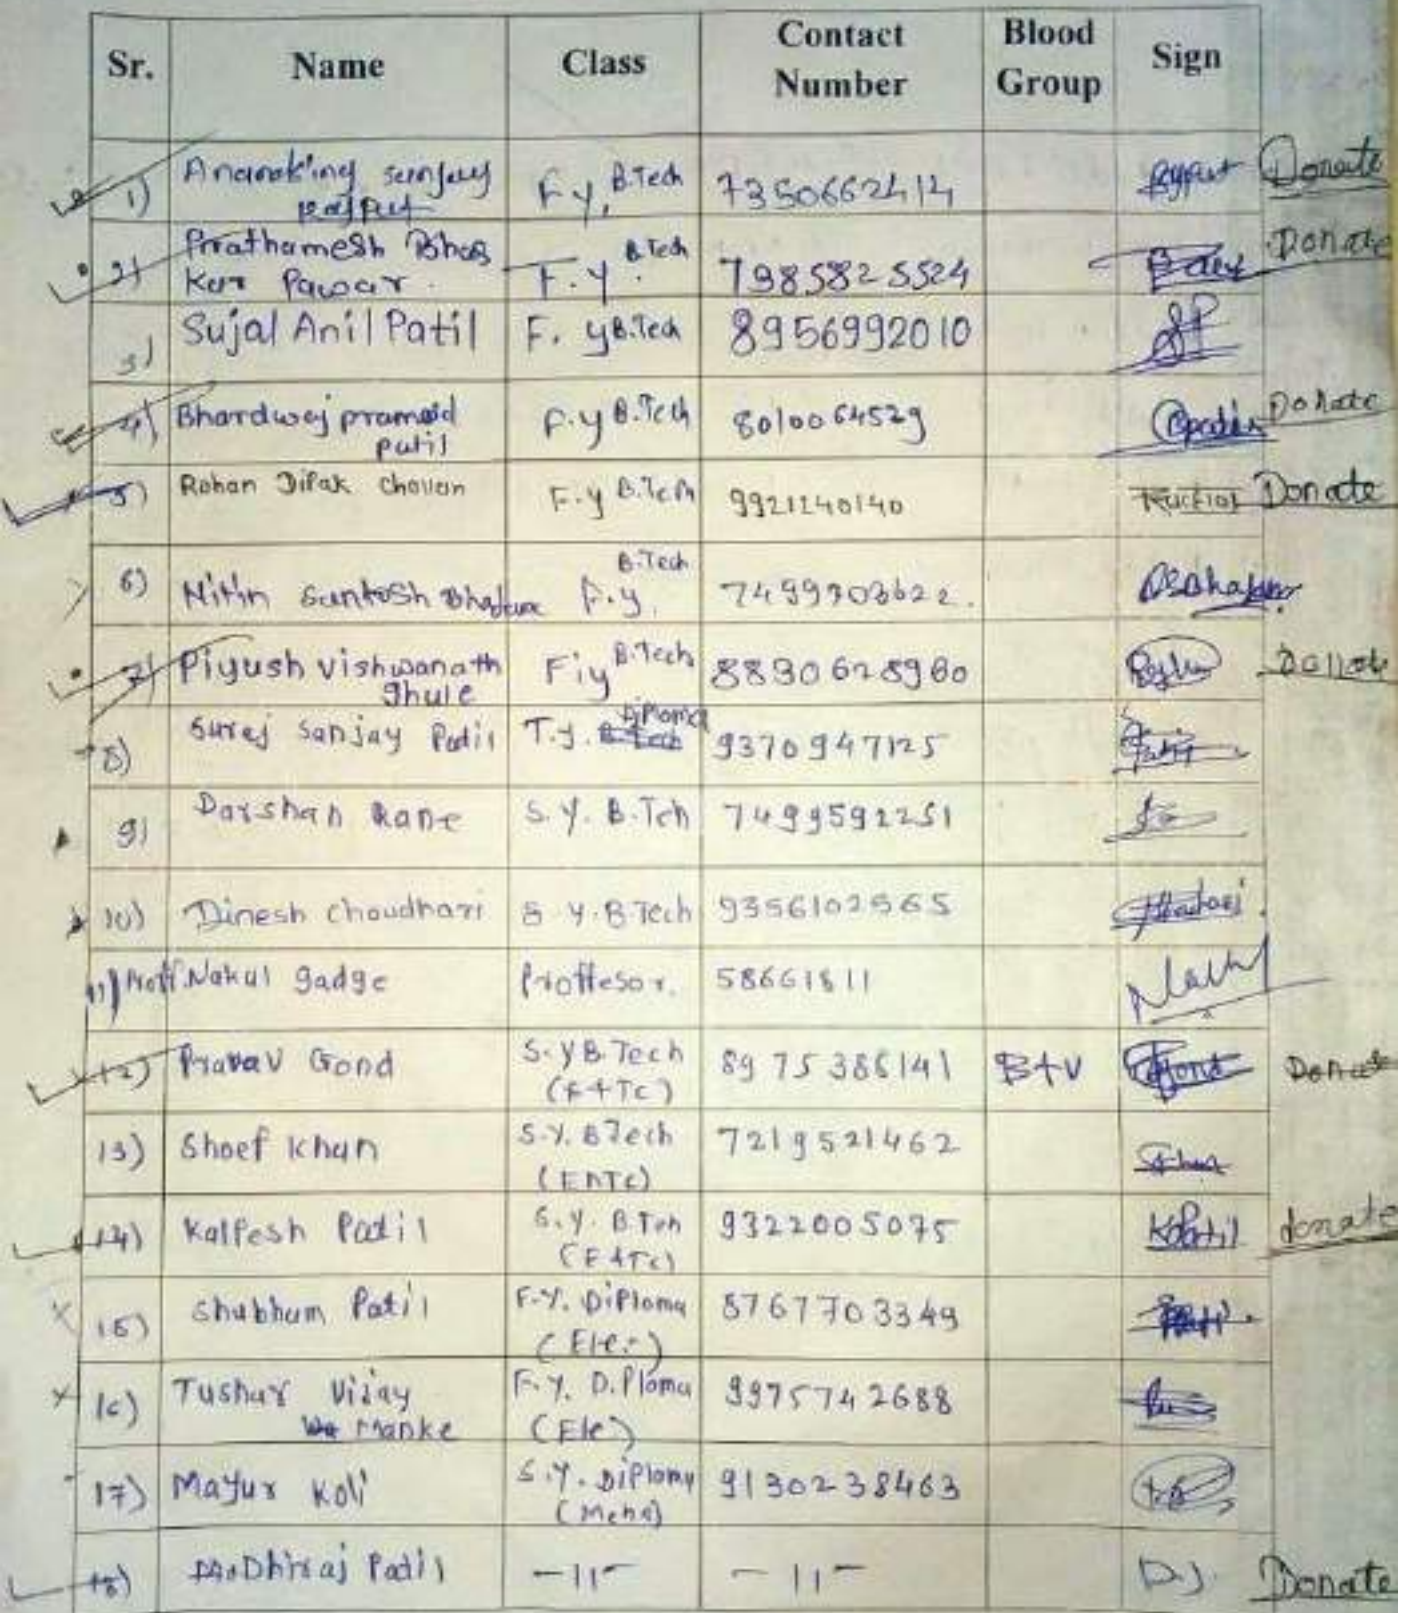 Sr. Name Class Contact Number Blood Group Sign
1) sanjay F.y. B.Tech 7350662414 Donate
2) Prathamesh Bhas
kar Pawar F.y. B.Tech 7985825524 Donate
3) Sujal Anil Patil F. y B.Tech 8956992010
4) Bhardwaj pramod
patil F.y B.Tech 8010064529 Donate
5) Rohan Dipak chavan F.y B.Tech 9921240140 Donate
6) Nitin Santosh F.y. B.Tech 7499703622.
7) Piyush vishwanath
ghule F.y B.Tech 8830628960 Donate
8) Suraj Sanjay Patil T.y. Diploma 9370947125
9) Darshan Rane S.Y. B.Teh 7499592251
10) Dinesh Choudhari S.Y.B.Tech 9356102565
11) Proff. Nakul gadge Proffesor. 58661811
12) Pranav Gond S.Y B.Tech
(E&Tc) 8975386141 B+V Donate
13) Shoef Khan S.Y. B.Tech
(EnTc) 7219521462
14) Kalpesh Patil S.Y. B.Teh
(E&Tc) 9322005075 K.Patil donate
15) Shubham Patil F.Y. Diploma
(Ele.) 8767703349
16) Tushar Vijay
Manke F.Y. Diploma
(Ele) 9975742688
17) Mayur Koli S.Y. Diploma
(Meha) 9130238463
18) Dhiraj Patil -11- -11- D.J. Donate